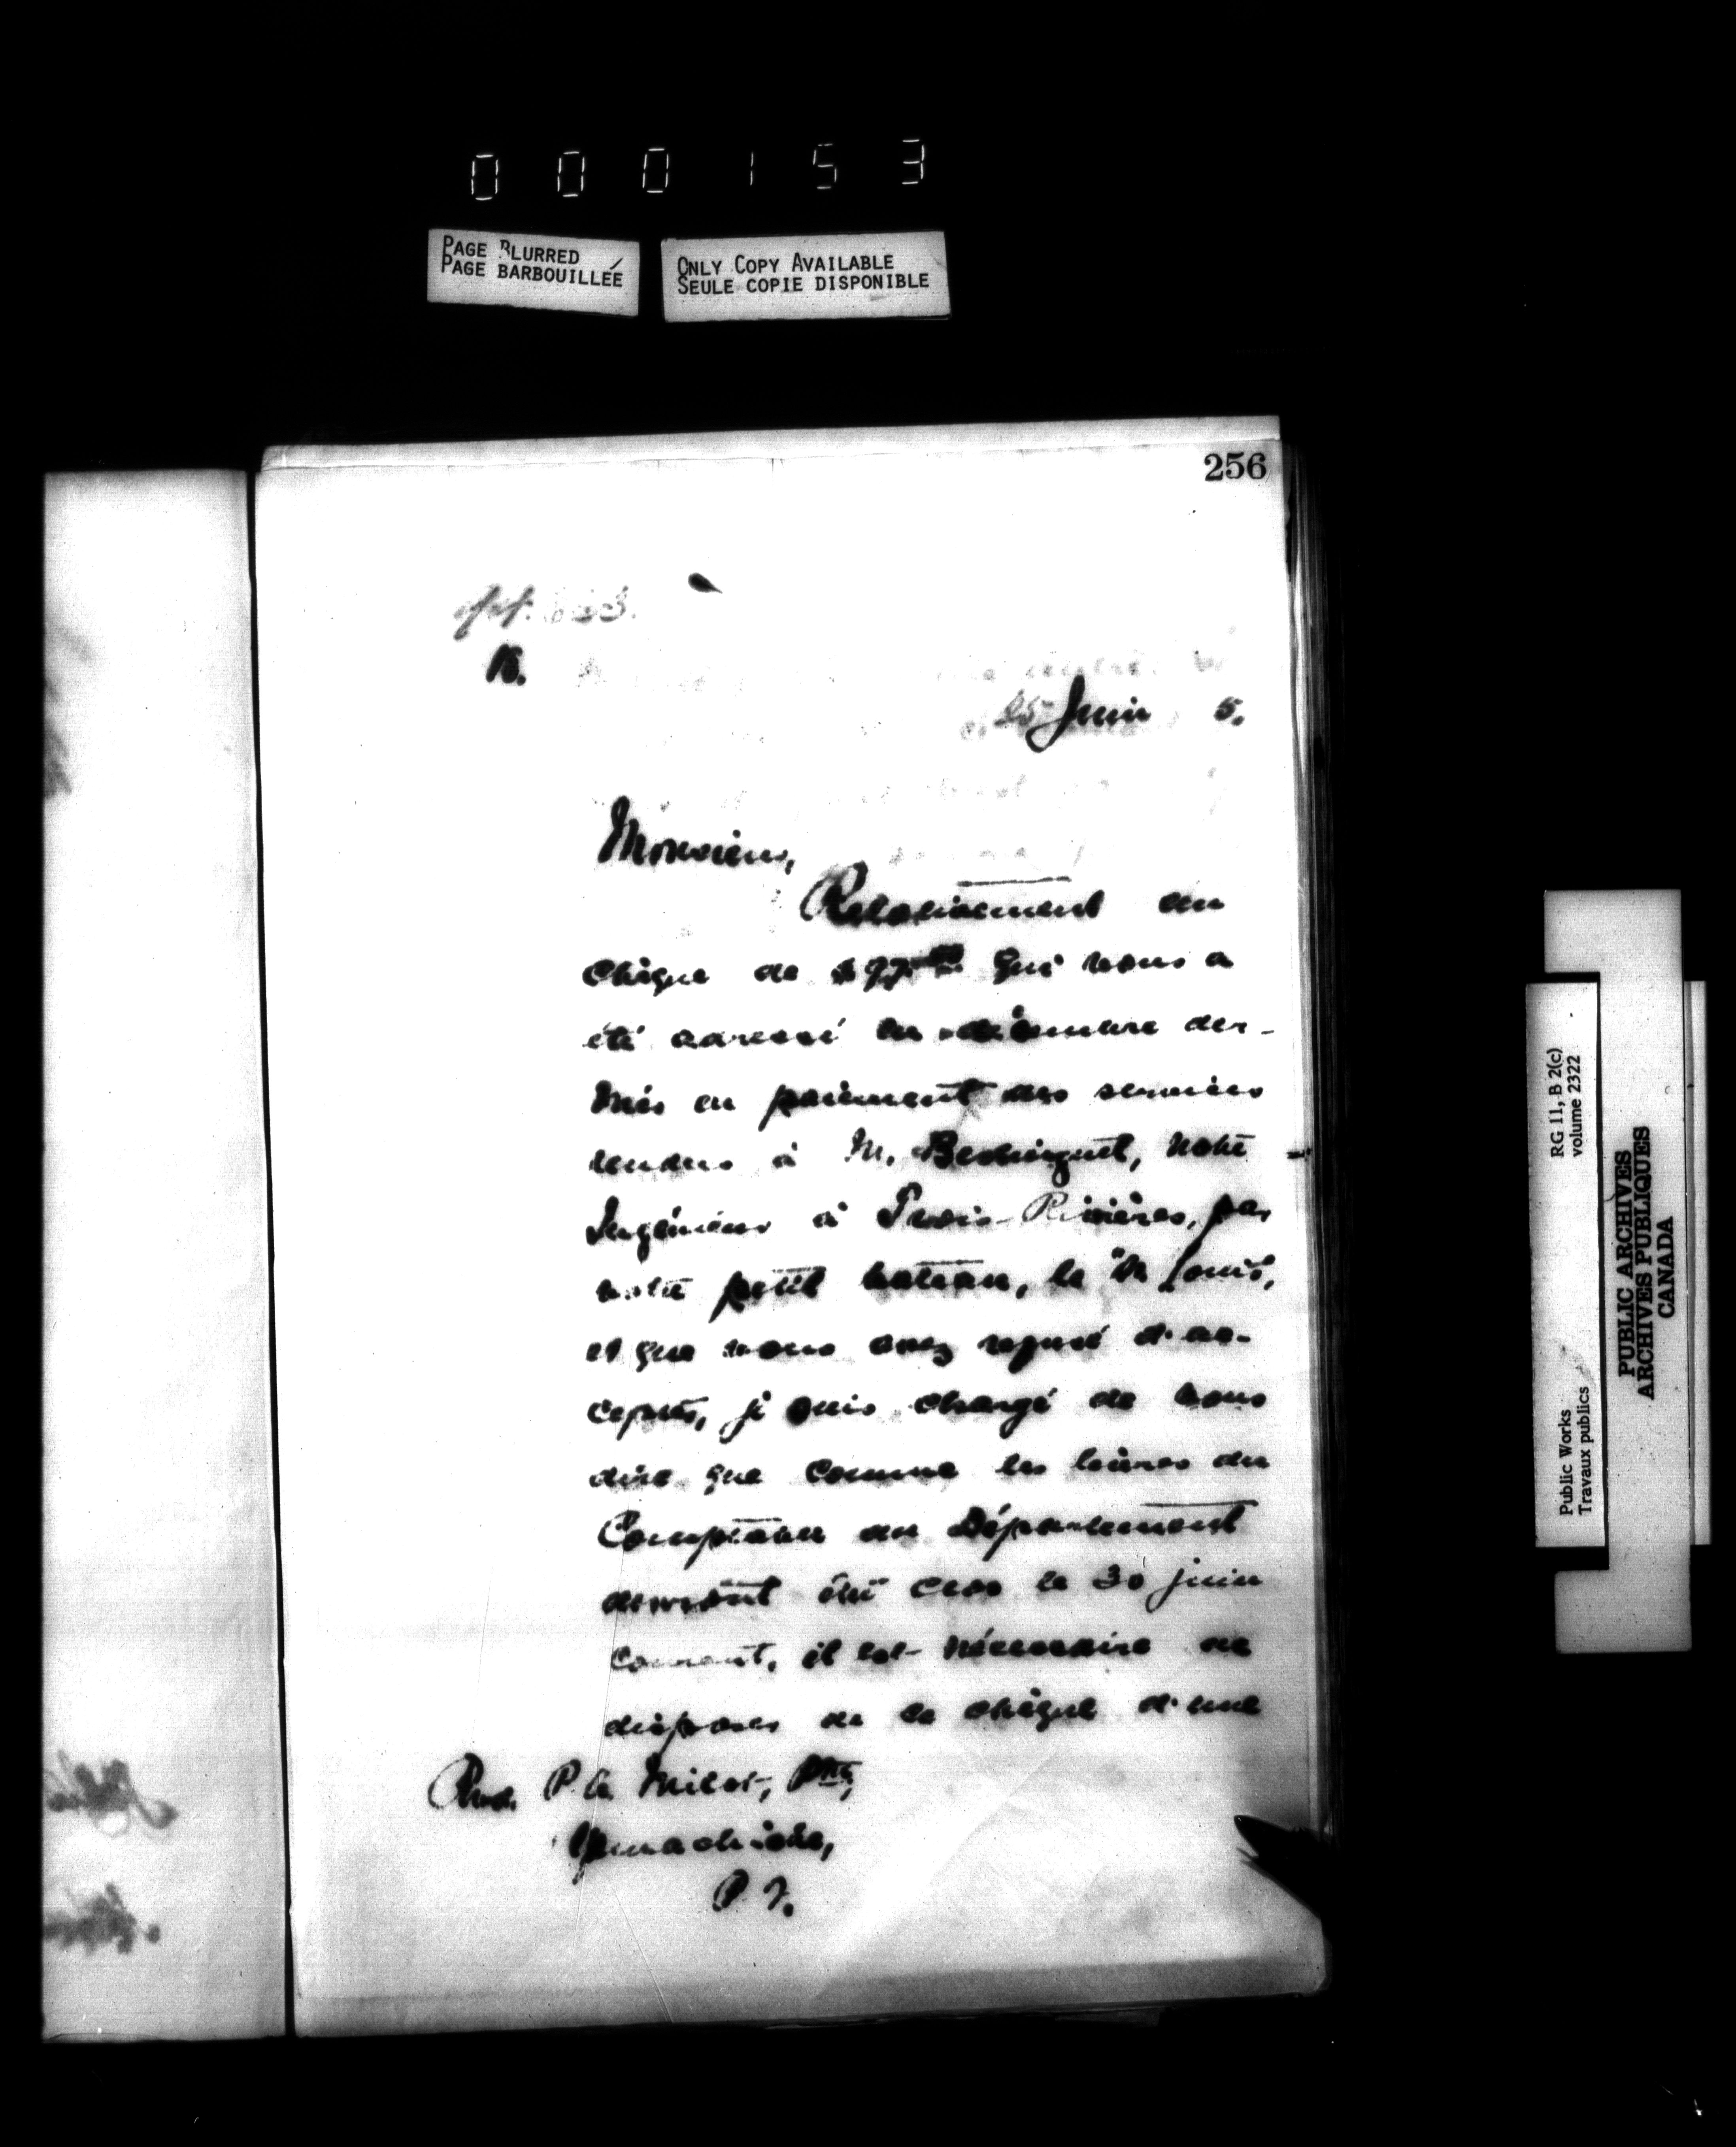 000153
PAGE BLURRED
PAGE BARBOUILLÉE
ONLY COPY AVAILABLE
SEULE COPIE DISPONIBLE
256
25 Juin 5.
Monsieur,
Relativement au
chèque de $97 qui vous a
été adressé en décembre der-
nier en paiement des services
rendus à M. Bellinguet, notre
Ingénieur à Trois-Rivières, par
votre petit bateau, le "St Louis,
et que vous avez refusé d'ac-
cepter, je suis chargé de vous
dire que comme les livres du
Comptable du Département
devront être clos le 30 juin
courant, il est nécessaire de
disposer de ce chèque d'une
Revd. P. A. Milot, Ptre,
Yamachiche,
P. Q.
Public Works
Travaux publics
RG 11, B 2(c)
volume 2322
PUBLIC ARCHIVES
ARCHIVES PUBLIQUES
CANADA